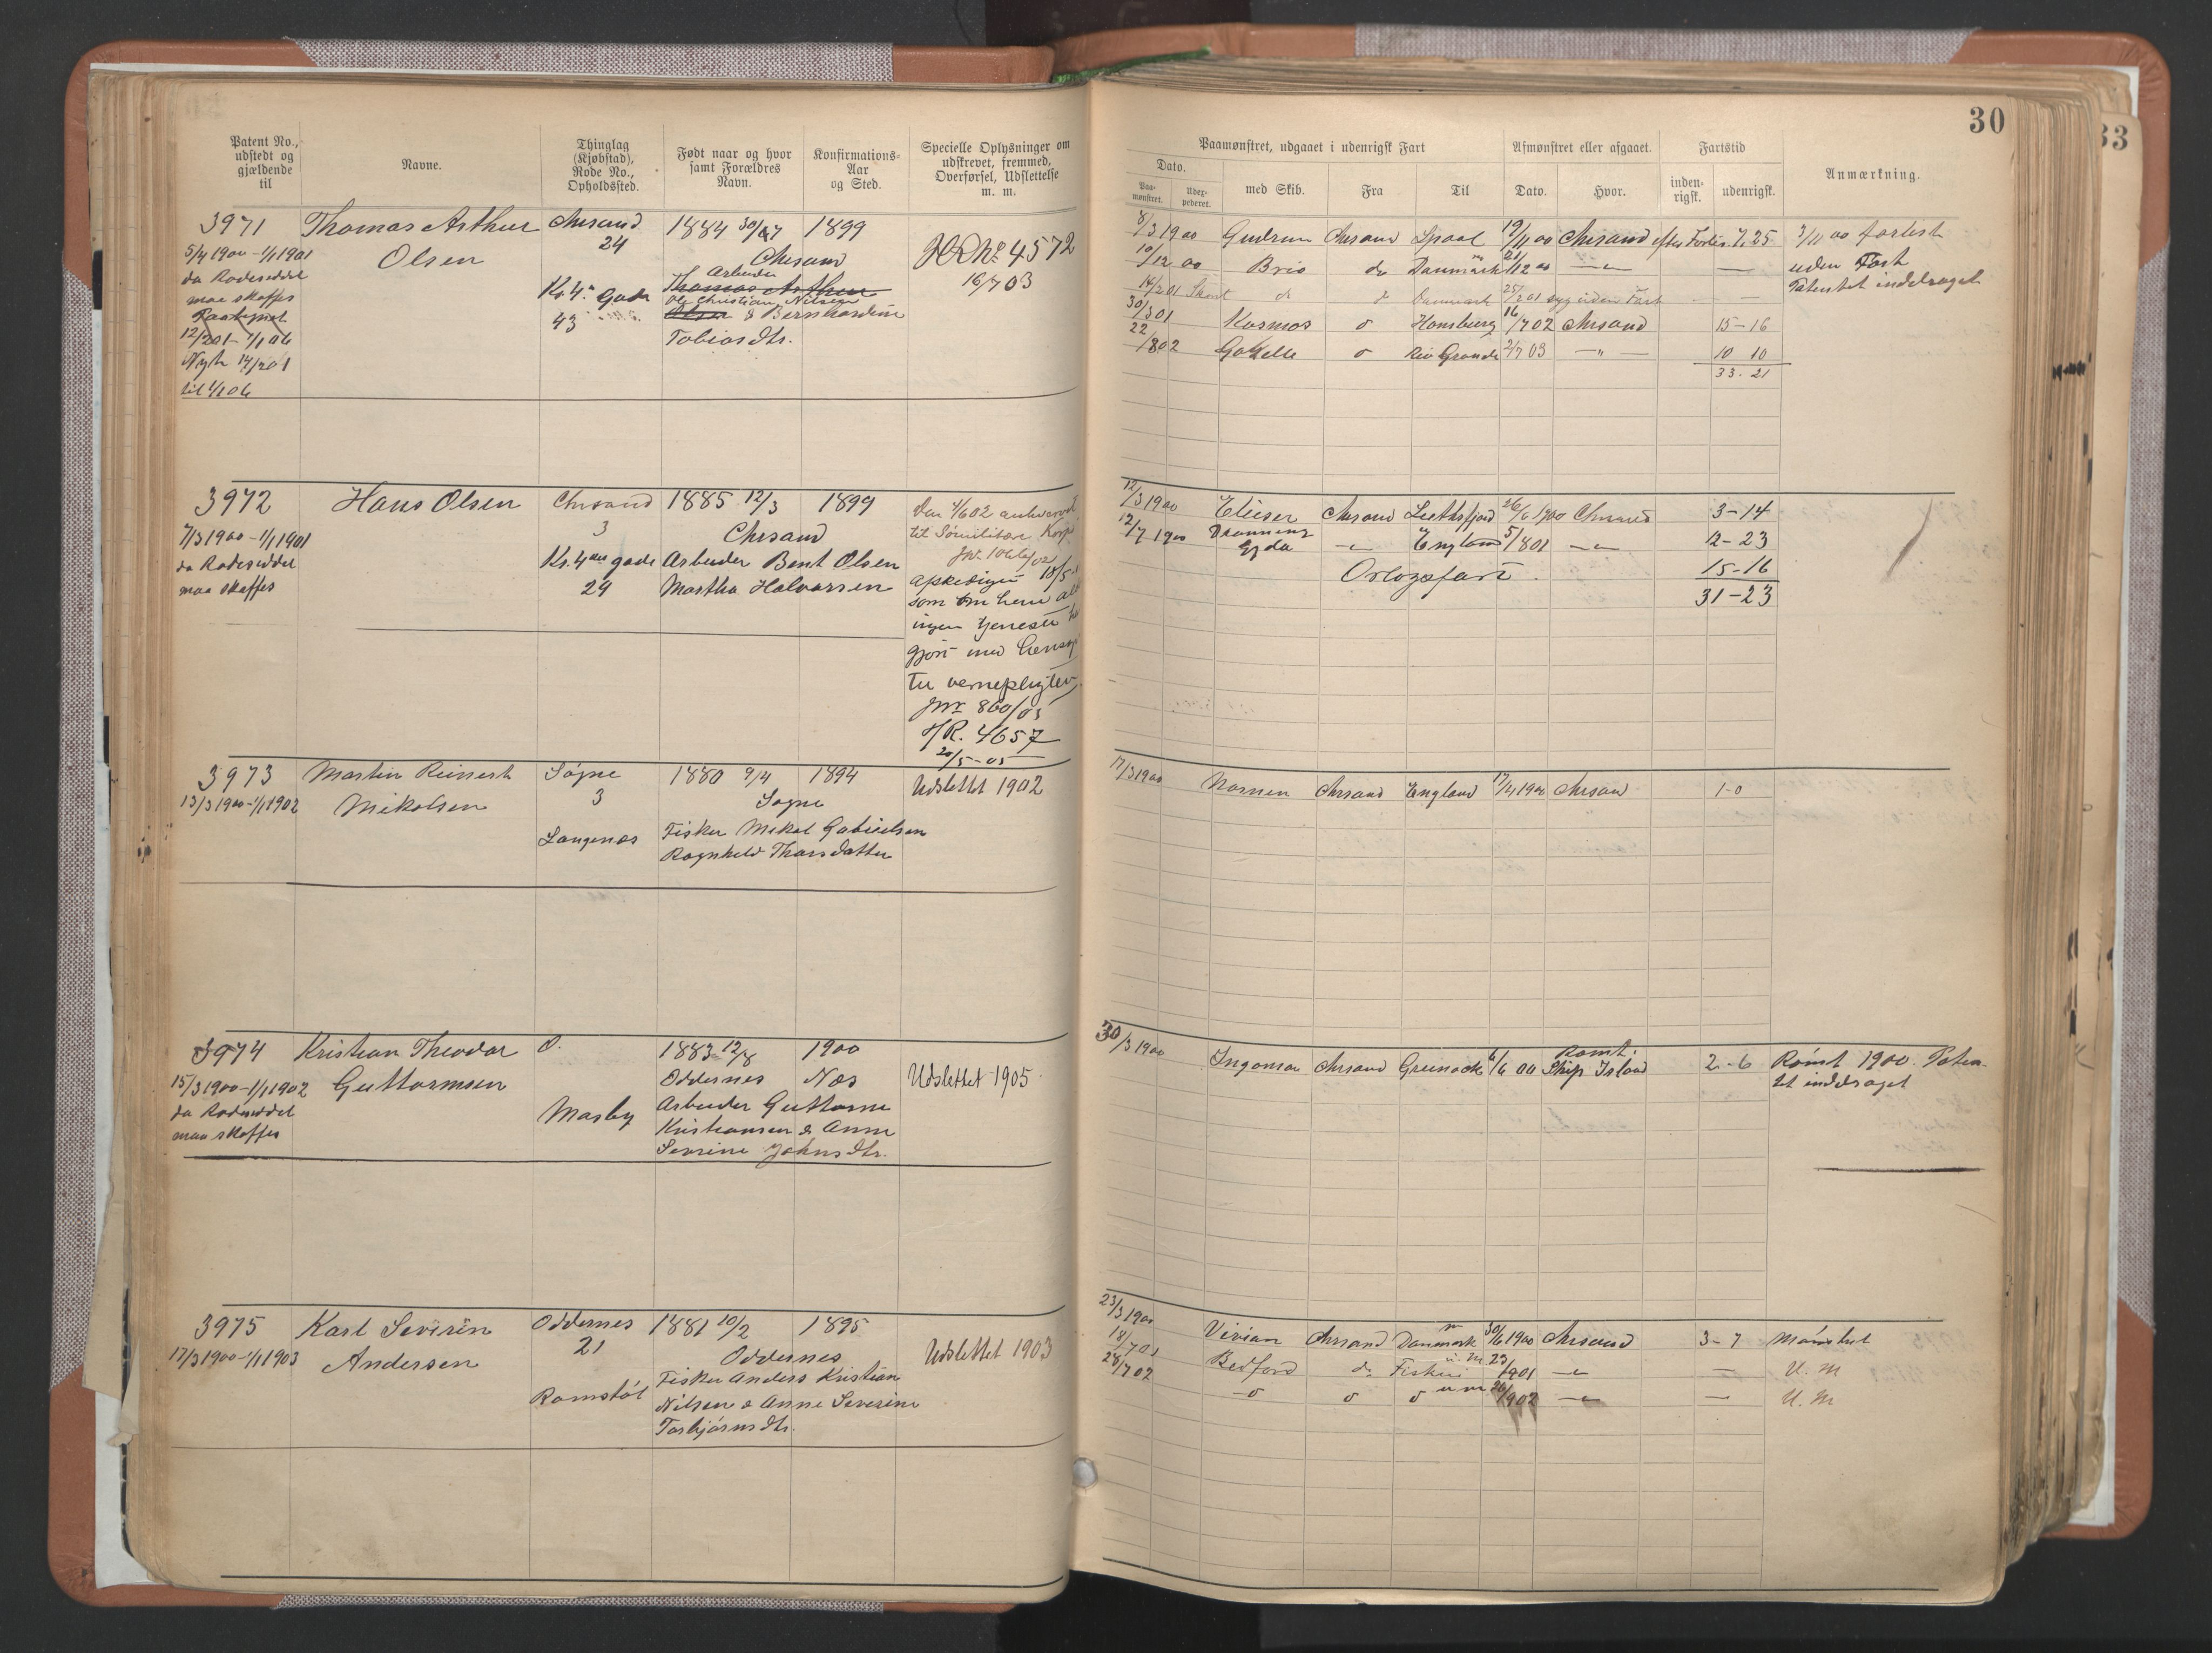 30
33
Patent No.,
udstedt og
gjældende
til
Navne.
Thinglag
(Kjøbstad),
Rode No.,
Opholdssted.
Født naar og hvor
samt Forældres
Navn.
Konfirmations-
Aar
og Sted.
Specielle Oplysninger om
udskrevet, fremmed,
Overførsel, Udslettelse
m. m.
Paamønstret, udgaaet i udenrigsk Fart
Afmønstret eller afgaaet.
Fartstid
Anmærkning.
Dato.
Paa-
mønstret.
Udex-
pederet.
med Skib.
Fra
Til
Dato.
Hvor.
inden-
rigsk.
udenrigsk.
3971
5/4 1900 - 1/1 1901
da Rodeseddel
maa skaffes
Paategnet
12/2 01 - 1/1 06
Nyt 14/2 01
til 1/1 06
Thomas Arthur
Olsen
Chrsand
24
Kr. 4. Gade
43
1884 30/
Chrsand
Arbeider
Thomas Arthur
Ole Christian Nilsen
Olsen & Bernhardine
Tobiasdtr.
1899
HR No 4572
16/7 03
8/3 1900 Gudrun Chrsand 19/11 00 Chrsand efter Forlis 7.25 3/11 00 forlist
10/12 00 Brio do Danmark 21/12 00 — " — — uden Fart
14/2 01 do do Danmark 25/2 01 syg uden Fart — Patentet inddraget
30/3 01 Kosmos o Hamburg 16/7 02 Chrsand 15-16
22/8 02 Gazelle o Rio Grande 2/7 03 — " — 10 10
33-21
3972
7/3 1900 - 1/1 1901
da Rodeseddel
maa skaffes
Hans Olsen
Chrsand
3
Kr. 4den gade
29
1885 12/3
Chrsand
Arbeider Bent Olsen
Martha Halvorsen
1899
Den 4/6 02 antvorod
til Sømilitære Korps
JNr. 1066/02
afskediget 18/5
som om han
ingen tjeneste
gjort med hensyn
til vernepligten.
JNr 860/05
HR. 4657
20/5-05
12/3 1900 Elieser Chrsand 26/6 1900 Chrsand 3-14
12/7 1900 Dronning
Gyda — " — England 5/8 01 — " — 12-23
Orlogsfart 15-16
31-23
3973
13/3 1900 - 1/1 1902
Martin Reinert
Mikalsen
Søgne
3
Langenæs
1880 9/4
Søgne
Fisker Mikal Gabrielsen
Ragnhild Thorsdatter
1894
Udslettet 1902
17/3 1900 Nornen Chrsand England 17/4 1900 Chrsand 1-0
3974
15/3 1900 - 1/1 1902
da Rodeseddel
maa skaffes
Kristian Theodor
Guttormsen
O.
Mosby
1883 12/8
Oddernes
Arbeider Guttorm
Kristiansen & Anne
Severine Johnsdtr.
1900
Næs
Udslettet 1905.
30/3 1900 Ingomar Chrsand Greenock 6/6 00 Rømt.
Ship Island 2-6 Rømt 1900. Paten-
tet inddraget
3975
17/3 1900 - 1/1 1903
Karl Severin
Andersen
Oddernes
21
Romstøl
1881 10/2
Oddernes
Fisker Anders Kristian
Nilsen & Anne Severine
Torbjørnsdtr.
1895
Udslettet 1903
23/3 1900 Vivian Chrsand Danmark 30/6 1900 Chrsand 3-7 Mønstret
18/7 01 Bedford do Fiskeri u.M 23/1901 — " — — U. M
28/7 02 — o o o u m 20/902 — " — — U. M